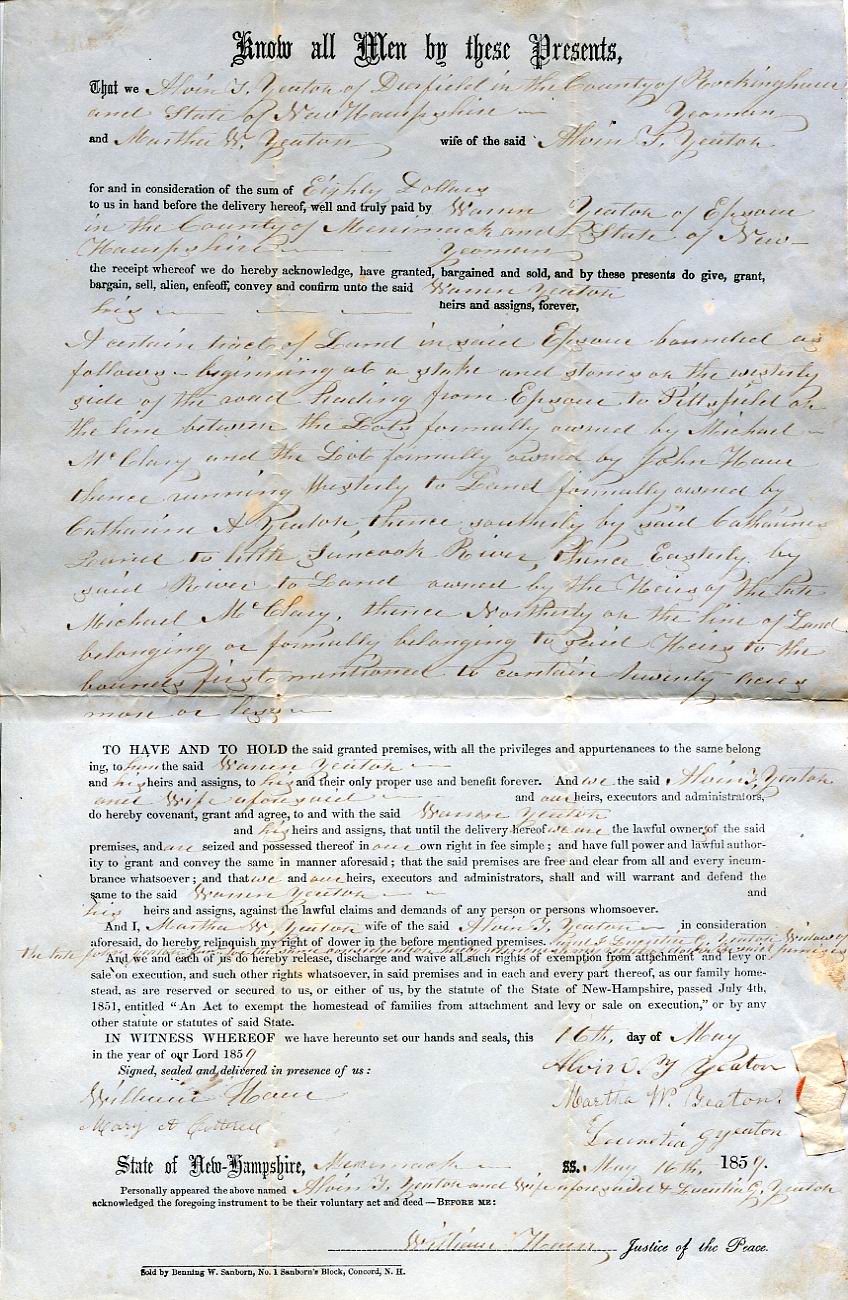 Know all Men by these Presents,
That we Alvin T. Yeaton of Deerfield in the County of Rockingham
and State of New Hampshire Yeoman
and Martha W. Yeaton wife of the said Alvin T. Yeaton
for and in consideration of the sum of Eighty Dollars
to us in hand before the delivery hereof, well and truly paid by Warren Yeaton of Epsom
in the County of Merrimack and State of New-
Hampshire Yeoman
the receipt whereof we do hereby acknowledge, have granted, bargained and sold, and by these presents do give, grant,
bargain, sell, alien, enfeoff, convey and confirm unto the said Warren Yeaton
his heirs and assigns, forever,
A certain tract of Land in said Epsom bounded as
follows - beginning at a stake and stones on the westerly
side of the road leading from Epsom to Pittsfield on
the line between the Lots formally owned by Michael
McClary and the Lot formally owned by John Ham
thence running Westerly to Land formally owned by
Catharine A Yeaton, thence southerly by said Catharines
Land to little Suncook River, thence Easterly by
said River to Land owned by the Heirs of the late
Michael McClary, thence Northerly on the line of Land
belonging or formally belonging to said Heirs to the
bounds first mentioned to contain twenty acres
more or less
TO HAVE AND TO HOLD the said granted premises, with all the privileges and appurtenances to the same belong
ing, to him the said Warren Yeaton
and his heirs and assigns, to his and their only proper use and benefit forever. And we the said Alvin T. Yeaton
and Wife aforesaid and our heirs, executors and administrators,
do hereby covenant, grant and agree, to and with the said Warren Yeaton
and his heirs and assigns, that until the delivery hereof we are the lawful owner of the said
premises, and are seized and possessed thereof in our own right in fee simple; and have full power and lawful author-
ity to grant and convey the same in manner aforesaid; that the said premises are free and clear from all and every incum-
brance whatsoever; and that we and our heirs, executors and administrators, shall and will warrant and defend the
same to the said Warren Yeaton and
his heirs and assigns, against the lawful claims and demands of any person or persons whomsoever.
And I, Martha W. Yeaton wife of the said Alvin T. Yeaton, in consideration
aforesaid, do hereby relinquish my right of dower in the before mentioned premises. and I Lucretia G. Yeaton Widow of
the late John Yeaton
And we and each of us do hereby release, discharge and waive all such rights of exemption from attachment and levy or
sale on execution, and such other rights whatsoever, in said premises and in each and every part thereof, as our family home-
stead, as are reserved or secured to us, or either of us, by the statute of the State of New-Hampshire, passed July 4th,
1851, entitled "An Act to exempt the homestead of families from attachment and levy or sale on execution," or by any
other statute or statutes of said State.
IN WITNESS WHEREOF we have hereunto set our hands and seals, this 16th, day of May
in the year of our Lord 1859
Signed, sealed and delivered in presence of us:
Alvin T Yeaton
William Ham
Martha W. Yeaton
Mary A
Lucretia G Yeaton
State of New-Hampshire, Merrimack ss. May 16th, 1859.
Personally appeared the above named Alvin T. Yeaton and Wife aforesaid & Lucretia G. Yeaton
acknowledged the foregoing instrument to be their voluntary act and deed—BEFORE ME:
William Ham Justice of the Peace.
Sold by Benning W. Sanborn, No. 1 Sanborn's Block, Concord, N. H.